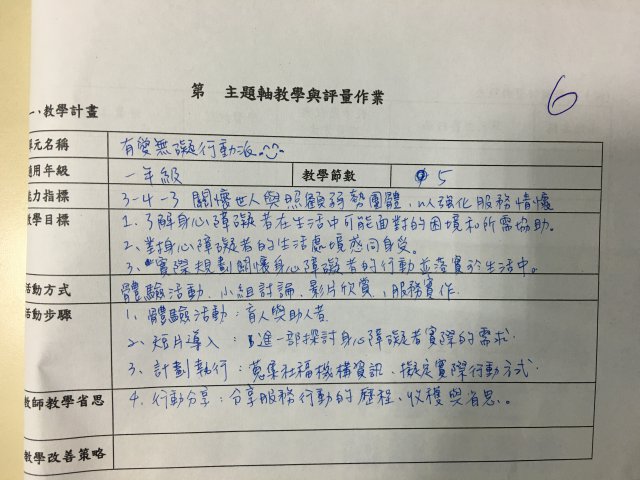 第 主題軸教學與評量作業
6
一、教學計畫
單元名稱 有愛無礙行動派
適用年級 一年級 教學節數 5
能力指標 3-4-3 關懷世人與照顧弱勢團體，以強化服務情懷
教學目標 1. 了解身心障礙者在生活中可能面對的困境和所需協助。
2. 對身心障礙者的生活處境感同身受。
3. 實際規劃關懷身心障礙者的行動並落實於生活中。
活動方式 體驗活動、小組討論、影片欣賞、服務實作
活動步驟 1. 體驗活動：盲人與助人者
2. 短片導入：進一部探討身心障礙者實際的需求
3. 計劃執行：蒐集社福機構資訊、擬定實際行動方式
教師教學省思 4. 行動分享：分享服務行動的歷程、收穫與省思。
教學改善策略